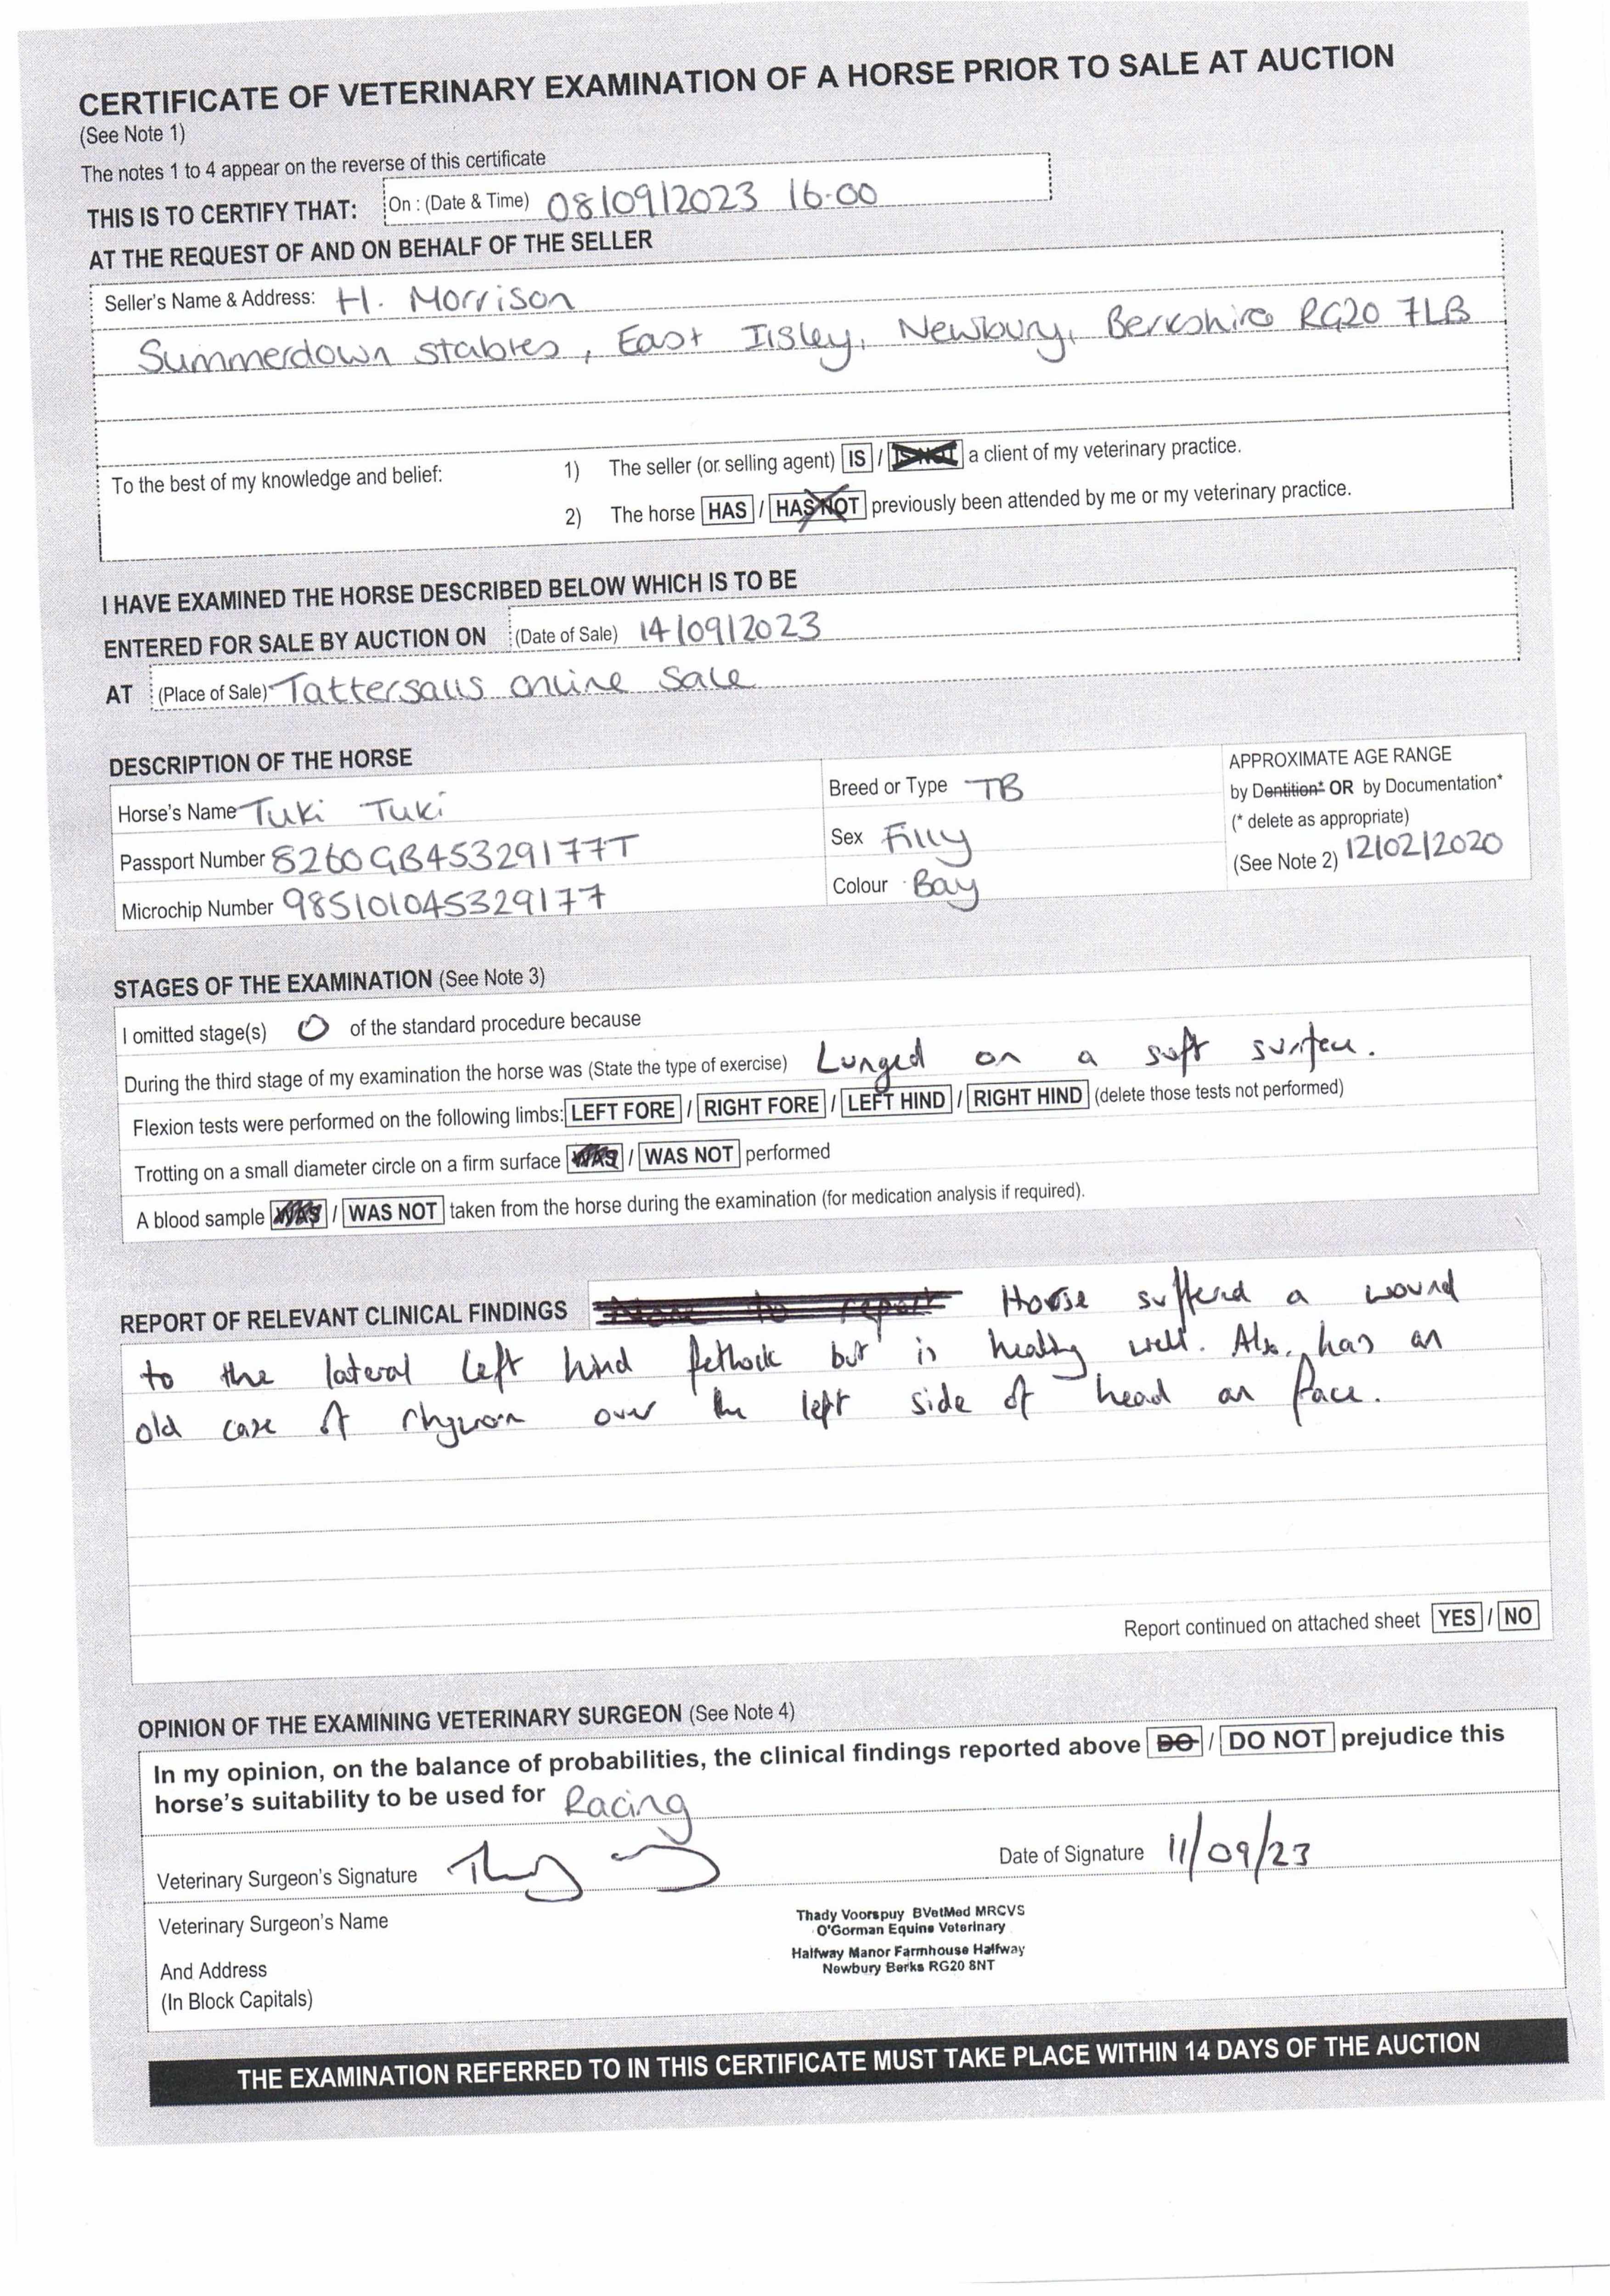 CERTIFICATE OF VETERINARY EXAMINATION OF A HORSE PRIOR TO SALE AT AUCTION
(See Note 1)
The notes 1 to 4 appear on the reverse of this certificate
THIS IS TO CERTIFY THAT: On : (Date & Time) 08/09/2023 16:00
AT THE REQUEST OF AND ON BEHALF OF THE SELLER
Seller's Name & Address: H. Morrison
Summerdown Stables, East Ilsley, Newbury, Berkshire RG20 7LB
To the best of my knowledge and belief: 1) The seller (or selling agent) IS / IS NOT a client of my veterinary practice.
2) The horse HAS / HAS NOT previously been attended by me or my veterinary practice.
I HAVE EXAMINED THE HORSE DESCRIBED BELOW WHICH IS TO BE
ENTERED FOR SALE BY AUCTION ON (Date of Sale) 14/09/2023
AT (Place of Sale) Tattersalls Online Sale
DESCRIPTION OF THE HORSE
Horse's Name Tuki Tuki
Passport Number 8260GB45329177T
Microchip Number 985101045329177
Breed or Type TB
Sex Filly
Colour Bay
APPROXIMATE AGE RANGE
by Dentition* OR by Documentation*
(* delete as appropriate)
(See Note 2) 12/02/2020
STAGES OF THE EXAMINATION (See Note 3)
I omitted stage(s) 0 of the standard procedure because
During the third stage of my examination the horse was (State the type of exercise) Lunged on a soft surface.
Flexion tests were performed on the following limbs: LEFT FORE / RIGHT FORE / LEFT HIND / RIGHT HIND (delete those tests not performed)
Trotting on a small diameter circle on a firm surface WAS / WAS NOT performed
A blood sample WAS / WAS NOT taken from the horse during the examination (for medication analysis if required).
REPORT OF RELEVANT CLINICAL FINDINGS None to report Horse suffered a wound
to the lateral left hind fetlock but is healing well. Also, has an
old case of over the left side of head an face.
Report continued on attached sheet YES / NO
OPINION OF THE EXAMINING VETERINARY SURGEON (See Note 4)
In my opinion, on the balance of probabilities, the clinical findings reported above DO / DO NOT prejudice this
horse's suitability to be used for Racing
Veterinary Surgeon's Signature
Date of Signature 11/09/23
Veterinary Surgeon's Name
And Address
(In Block Capitals)
Thady Voorspuy BVetMed MRCVS
O'Gorman Equine Veterinary
Halfway Manor Farmhouse Halfway
Newbury Berks RG20 8NT
THE EXAMINATION REFERRED TO IN THIS CERTIFICATE MUST TAKE PLACE WITHIN 14 DAYS OF THE AUCTION